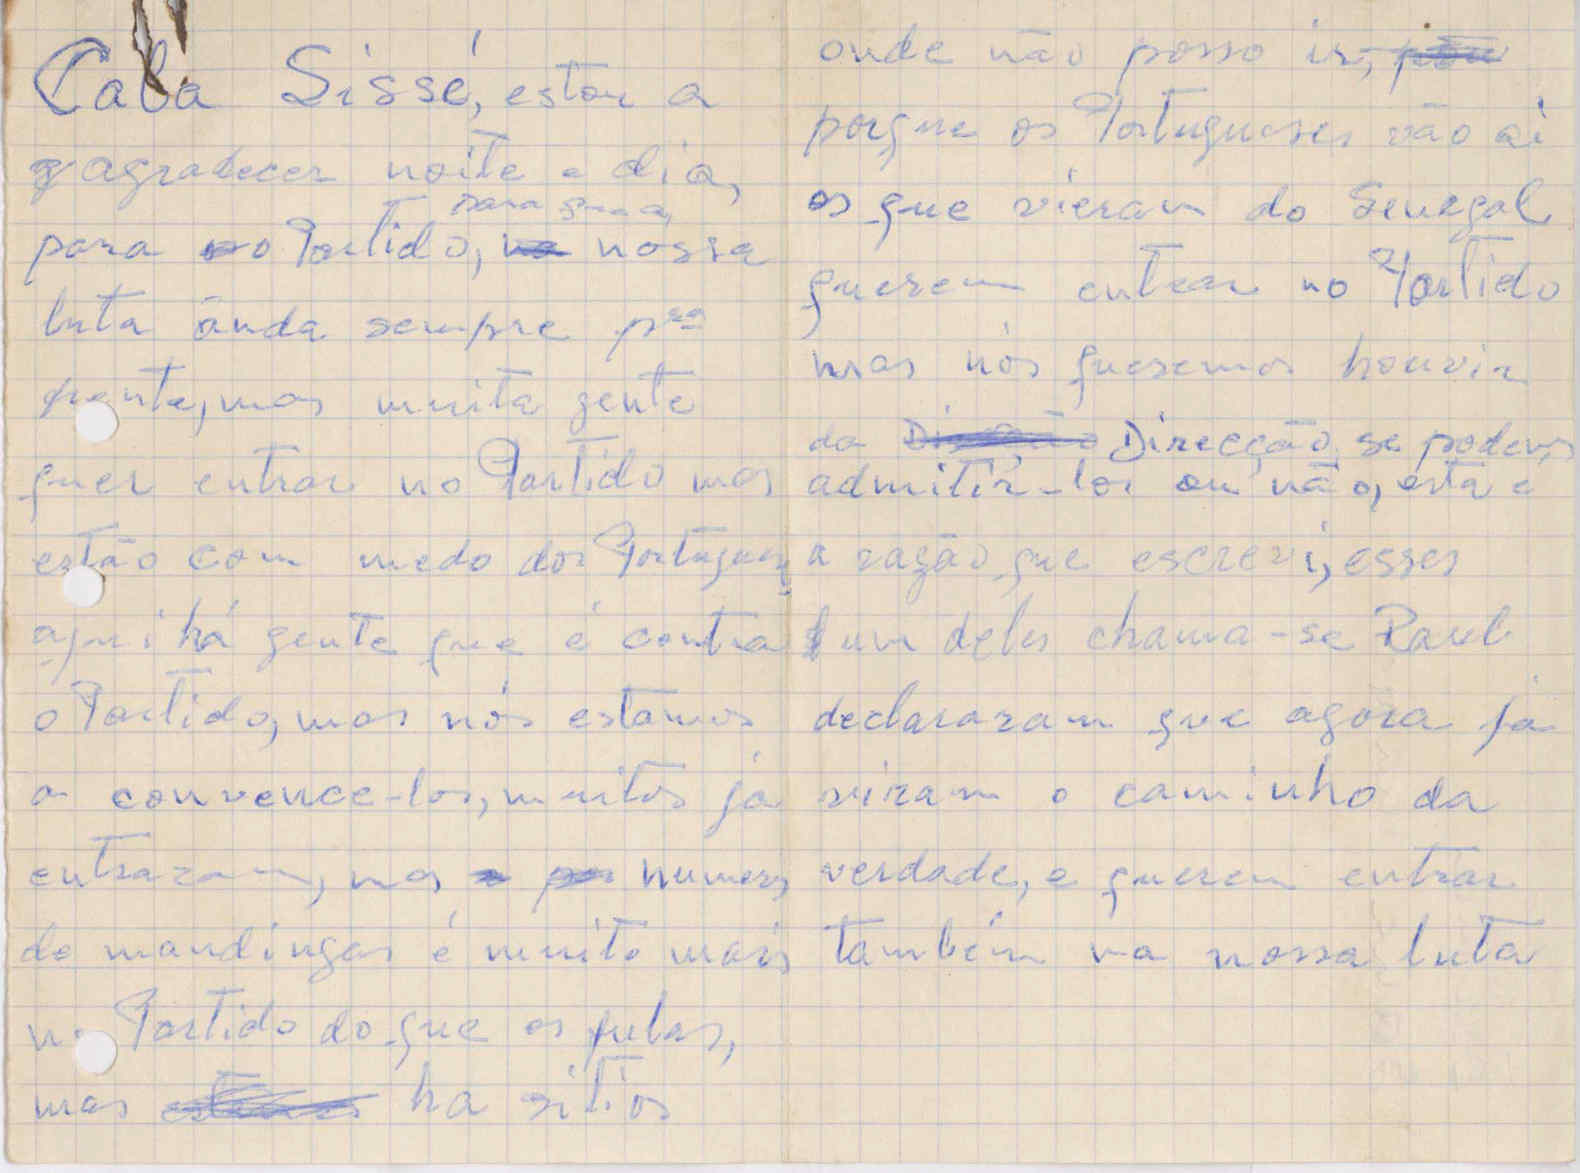 Caba Sissé, estou a
agradecer noite e dia,
para que a
para o Partido, nossa
luta ânda sempre pra
frente, mas muita gente
quer entrar no Partido mas
estão com medo dos Portugueses
aqui há gente que é contra
o Partido, mas nós estamos
a convence-los, muitos já
entraram, mas numero
de mandingas é muito mais
no Partido do que os fulas,
mas ha sitios
onde não posso ir,
porque os Portugueses vão ai
os que vieram do Senegal
querem entrar no Partido
mas nós queremos houvir
da Direcção se podemos
admitir-los ou não, esta é
a razão que escrevi, esses
um deles chama-se Raul
declararam que agora já
viram o caminho da
verdade, e querem entrar
também na nossa luta